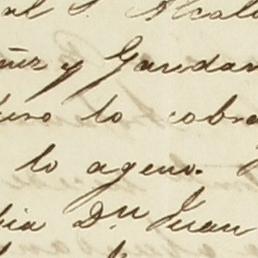 al S. Alcal
uñiz y Gandar
uso lo cobra
lo ageno.
bia Dn Juan